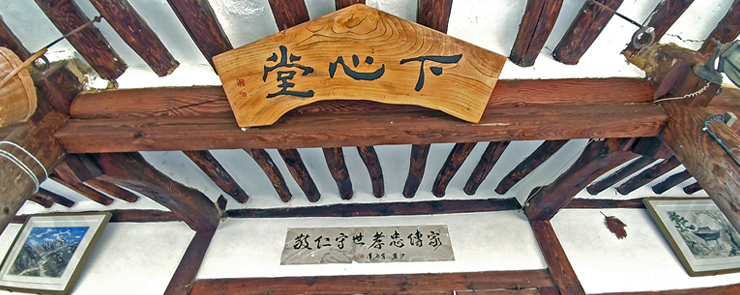 下心堂
家傳忠孝世守仁敬